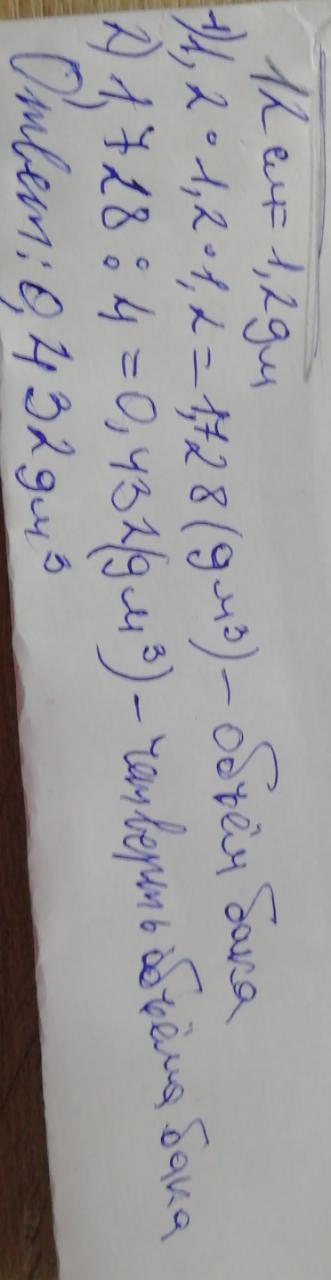 12 см = 1,2 дм
1) 1,2 · 1,2 · 1,2 = 1,728 (дм³) – объём бака
2) 1,728 : 4 = 0,432 (дм³) – четверть объёма бака
Ответ: 0,432 дм³